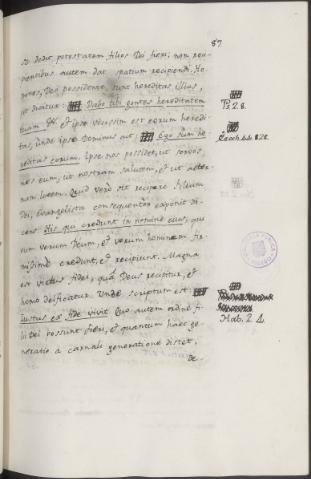 87
dedit potestatem filios Dei fieri; non reci-
pientibus autem dat spatium recipiendi. Ho-
mines, Dei possidentis, sunt hereditas illius,
dicitur: Dabo tibi gentes hereditatem
tuam. Et ipse vicissim est eorum heredi-
tas, unde ipse Dominus ait; Ego sum he-
reditas eorum. Ipse nos possidet, ut servos
nos eum, ut nostram salutem, et ut aeter-
nam lucem. Quid vero sit recipere filium
Dei, Evangelista consequenter exponit di-
cens His qui credunt in nomine eius, qui
eum verum Deum, et verum hominem fir-
missime credunt, et recipiunt. Magna
est virtus fidei, qua Deus recipitur, et
homo deificatur. Unde scriptum est:
Iustus ex fide vivit. Quo autem ordine fi-
lii Dei possunt fieri, et quantum haec ge-
neratio a carnali generatione distet,
Ps 2 8.
28.
Hab. 2 4.